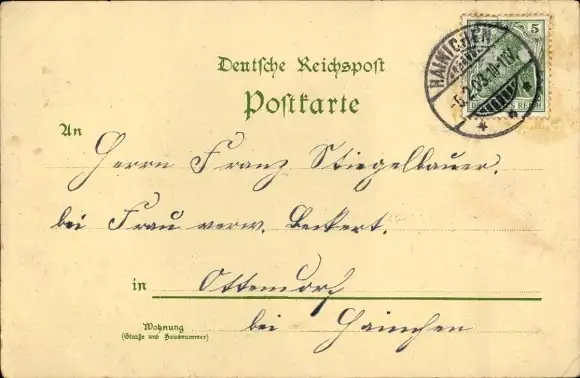 HAINICHEN
5
-5.2.03.10-11V.
REICH
Deutsche Reichspost
Postkarte
An
Herrn Franz Stiegelbauer.
bei Frau verw. Beckert.
in Ottendorf
bei Hainichen
Wohnung
(Straße und Hausnummer)